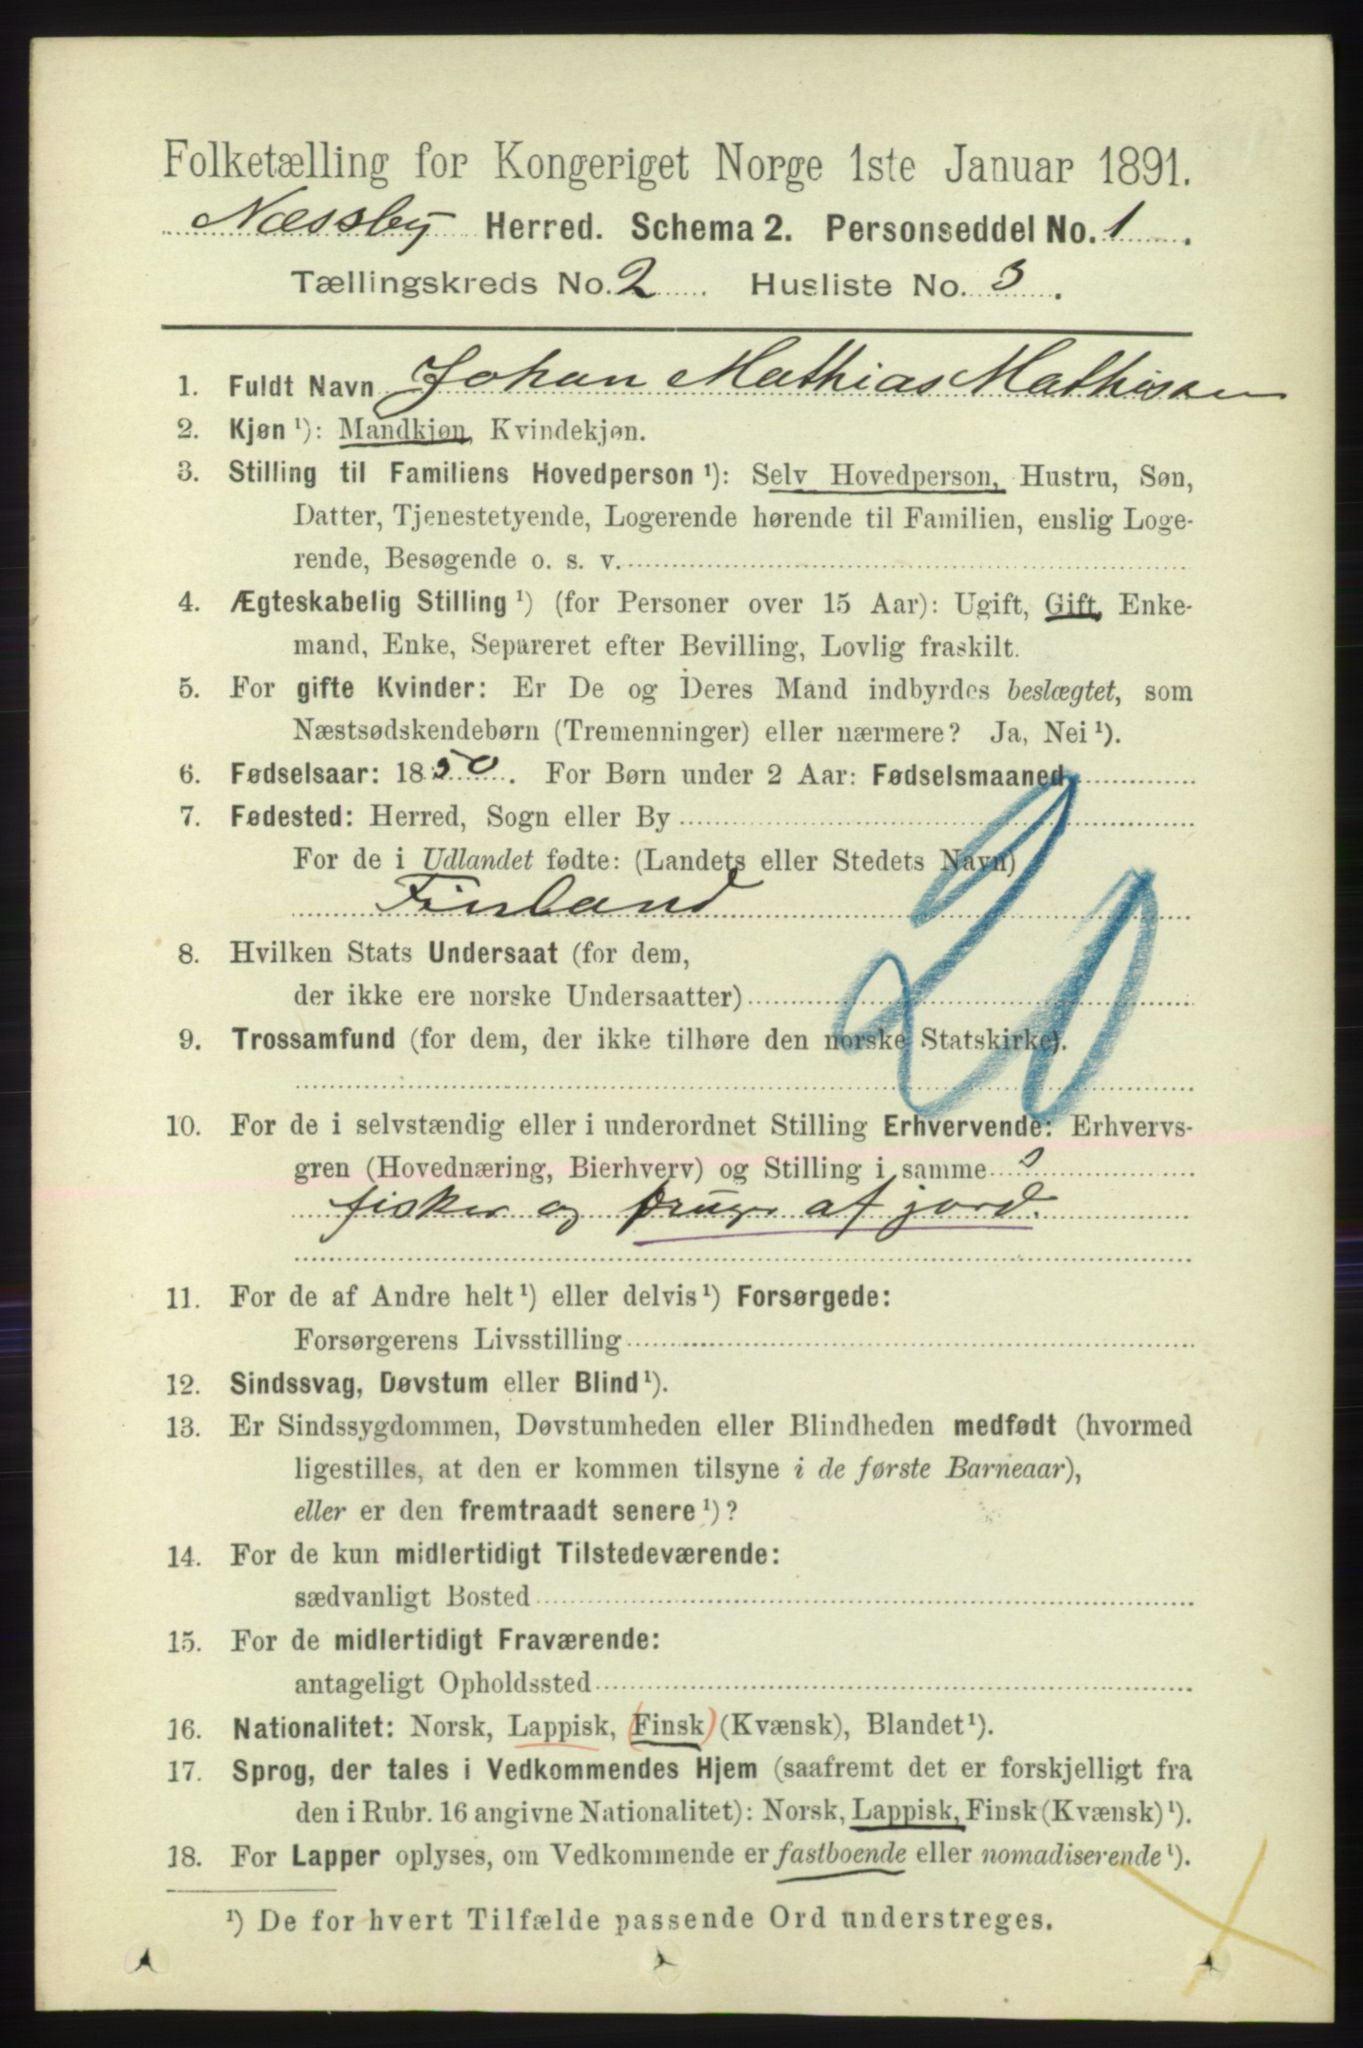 Folketælling for Kongeriget Norge 1ste Januar 1891.
Næssby Herred. Schema 2. Personseddel No. 1.
Tællingskreds No. 2. Husliste No. 3.
1. Fuldt Navn Johan Mathias Mathisen
2. Kjøn ¹): Mandkjøn, Kvindekjøn.
3. Stilling til Familiens Hovedperson ¹): Selv Hovedperson, Hustru, Søn,
Datter, Tjenestetyende, Logerende hørende til Familien, enslig Loge-
rende, Besøgende o. s. v.
4. Ægteskabelig Stilling ¹) (for Personer over 15 Aar): Ugift, Gift, Enke-
mand, Enke, Separeret efter Bevilling, Lovlig fraskilt.
5. For gifte Kvinder: Er De og Deres Mand indbyrdes beslægtet, som
Næstsødskendebørn (Tremenninger) eller nærmere? Ja, Nei ¹).
6. Fødselsaar: 1850. For Børn under 2 Aar: Fødselsmaaned
7. Fødested: Herred, Sogn eller By
For de i Udlandet fødte: (Landets eller Stedets Navn)
Finland
20
8. Hvilken Stats Undersaat (for dem,
der ikke ere norske Undersaatter)
9. Trossamfund (for dem, der ikke tilhøre den norske Statskirke).
10. For de i selvstændig eller i underordnet Stilling Erhvervende: Erhvervs-
gren (Hovednæring, Bierhverv) og Stilling i samme
fisker og bruger af jord.
11. For de af Andre helt ¹) eller delvis ¹) Forsørgede:
Forsørgerens Livsstilling
12. Sindssvag, Døvstum eller Blind ¹).
13. Er Sindssygdommen, Døvstumheden eller Blindheden medfødt (hvormed
ligestilles, at den er kommen tilsyne i de første Barneaar),
eller er den fremtraadt senere ¹)?
14. For de kun midlertidigt Tilstedeværende:
sædvanligt Bosted
15. For de midlertidigt Fraværende:
antageligt Opholdssted
16. Nationalitet: Norsk, Lappisk, (Finsk) (Kvænsk), Blandet ¹).
17. Sprog, der tales i Vedkommendes Hjem (saafremt det er forskjelligt fra
den i Rubr. 16 angivne Nationalitet): Norsk, Lappisk, Finsk (Kvænsk) ¹).
18. For Lapper oplyses, om Vedkommende er fastboende eller nomadiserende ¹).
¹) De for hvert Tilfælde passende Ord understreges.